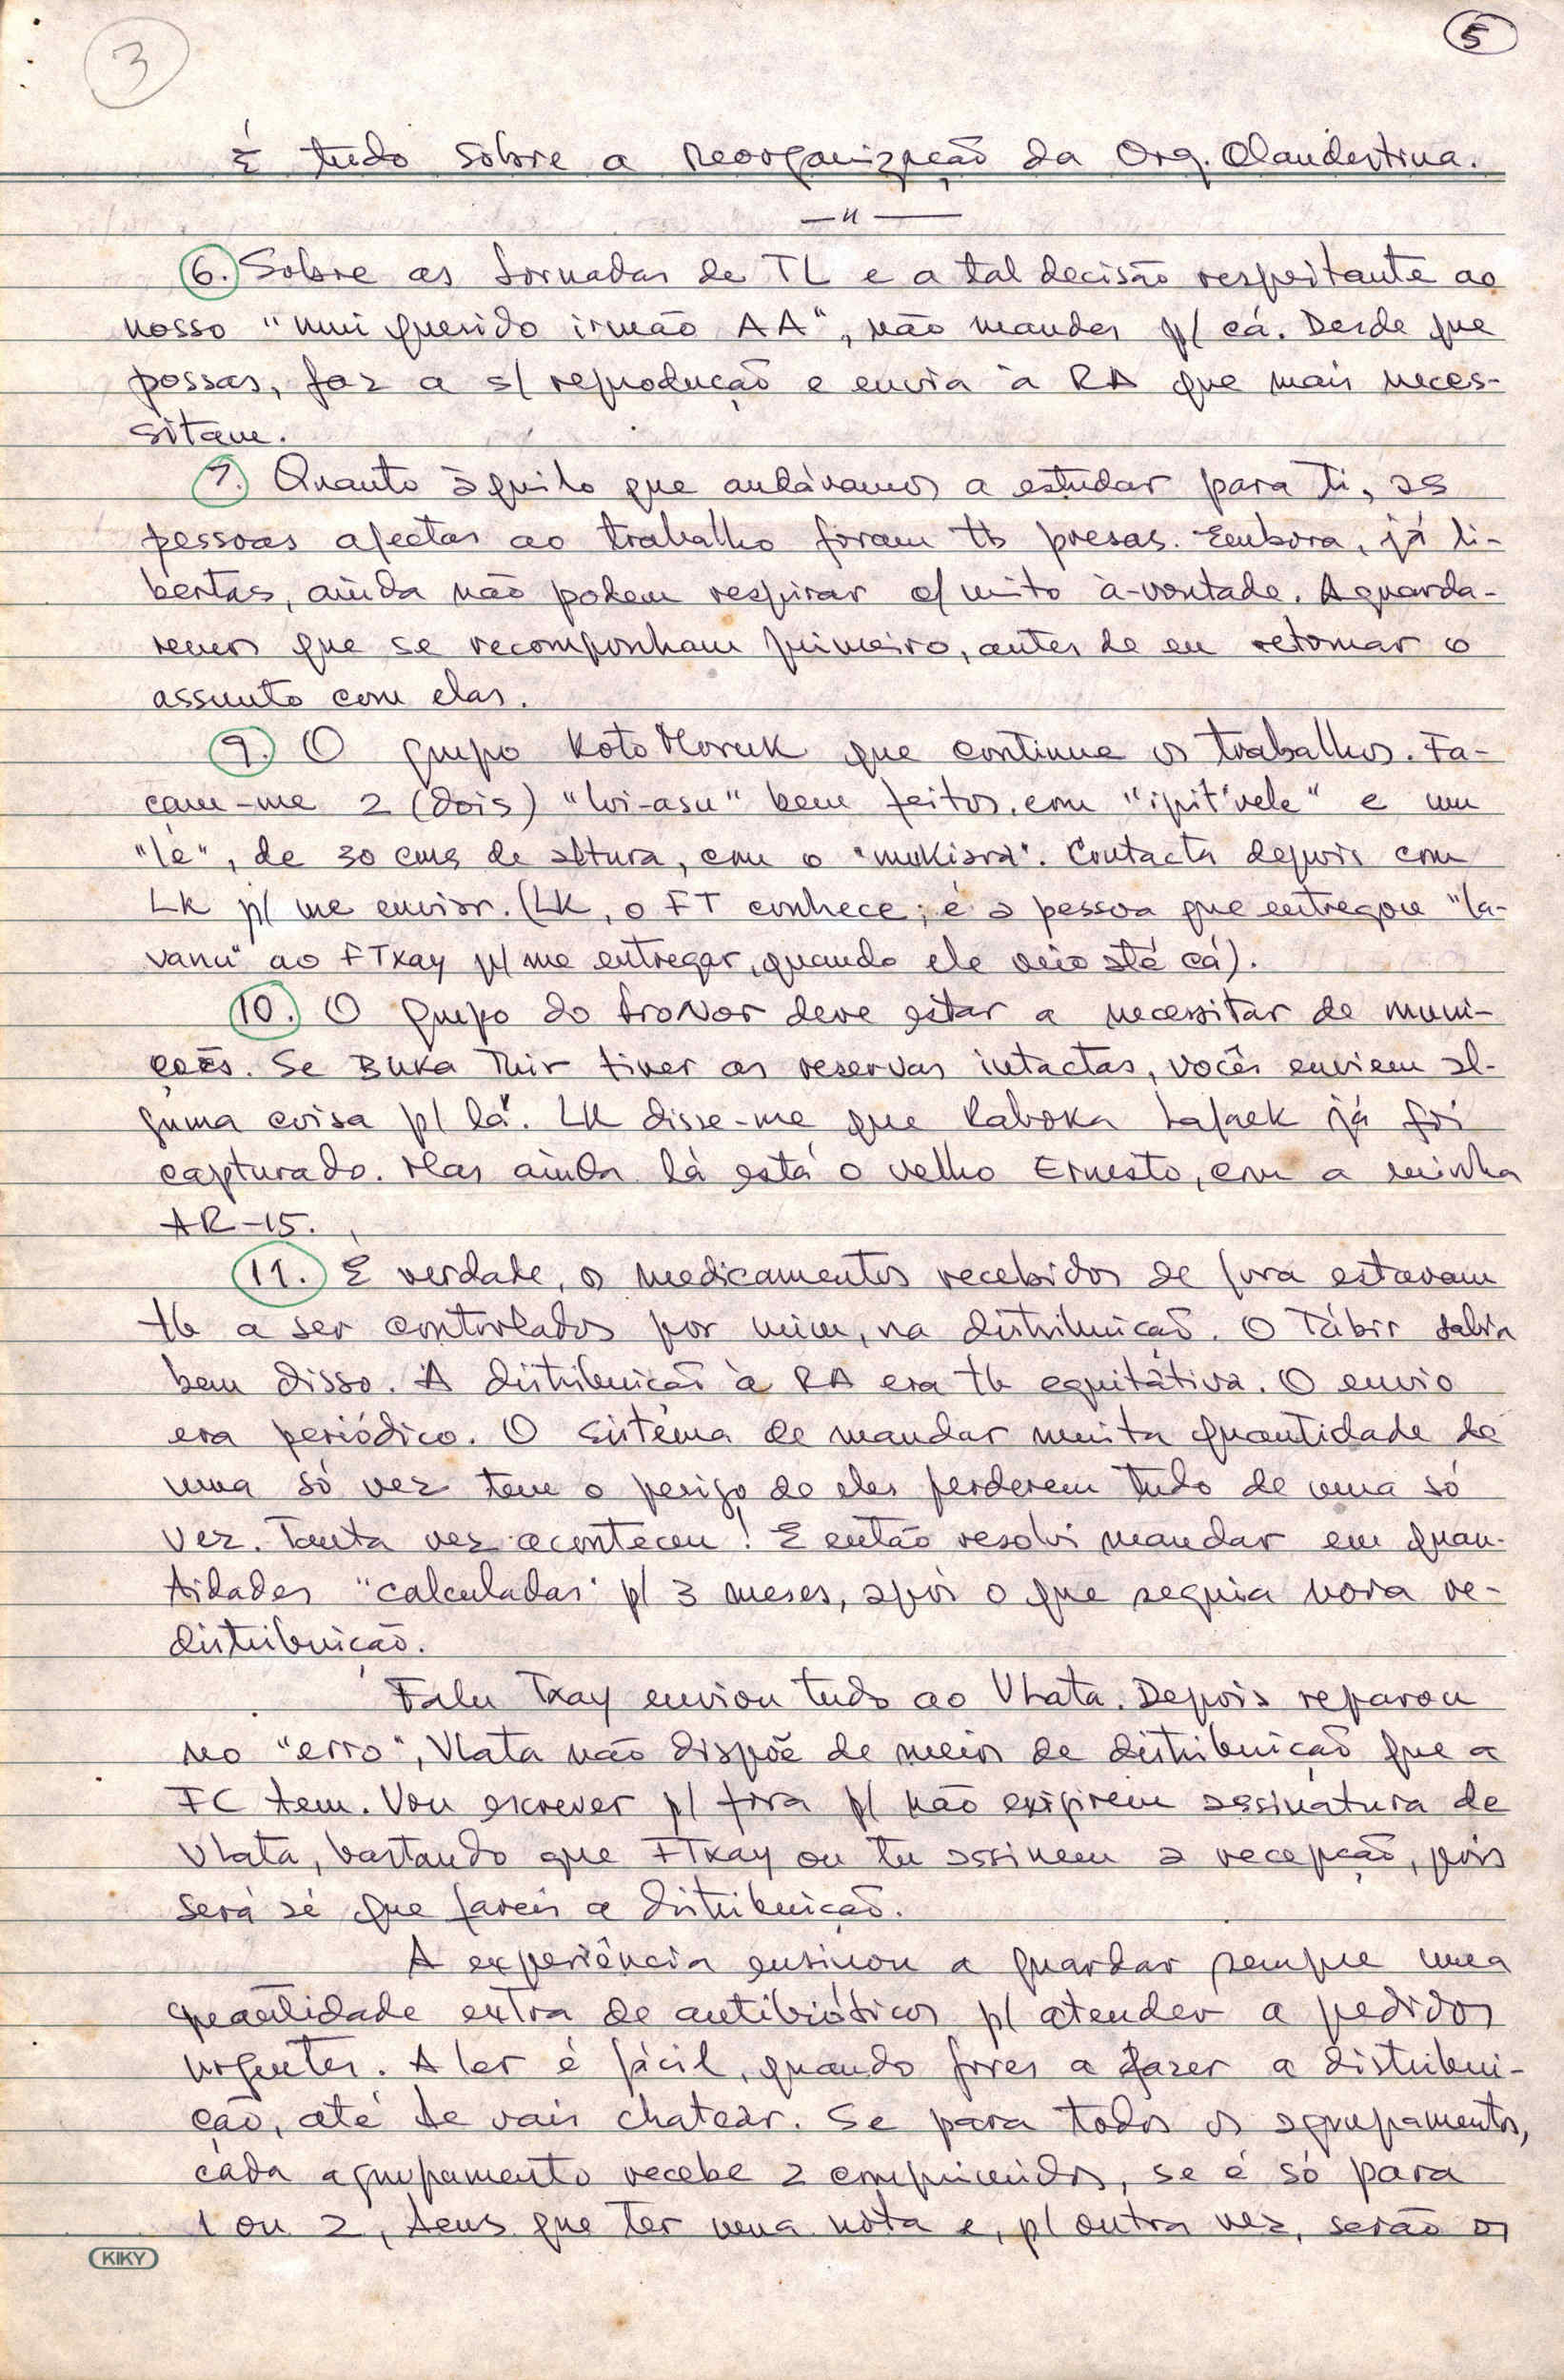 3
5
É tudo sobre a reorganização da Org. Clandestina.
— " —
6. Sobre as Jornadas de TL e a tal decisão respeitante ao
nosso "mui querido irmão AA", não mandes p/ cá. Desde que
possas, faz a s/ reprodução e envia à RA que mais neces-
sitam.
7. Quanto àquilo que andávamos a estudar para ti, as
pessoas afectas ao trabalho foram tb presas. Embora, já li-
bertas, ainda não podem respirar c/ mito à-vontade. Aguarda-
remos que se recomponham primeiro, antes de eu retomar o
assunto com elas.
9. O grupo Koto Moruk que continue os trabalhos. Fa-
çam-me 2 (dois) "loi-asu" bem feitos, com "ipit'vele" e um
"lé", de 30 cms de altura, com o "mukiará". Contacta depois com
LK p/ me enviar. (LK, o FT conhece; é a pessoa que entregou "la-
vanu" ao FTxay p/ me entregar, quando ele veio até cá).
10. O grupo do LroNor deve estar a necessitar de muni-
ções. Se Buka Thir tiver as reservas intactas, vocês enviem al-
guma coisa p/ lá. LK disse-me que Raboka Lafaek já foi
capturado. Mas ainda lá está o velho Ernesto, com a minha
AR-15.
11. É verdade, os medicamentos recebidos de fora estavam
tb a ser controlados por mim, na distribuição. O Tábir sabia
bem disso. A distribuição à RA era tb equitátiva. O envio
era periódico. O sistema de mandar muita quantidade de
uma só vez tem o perigo de eles perderem tudo de uma só
vez. Tanta vez aconteceu! E então resolvi mandar em quan-
tidades "calculadas" p/ 3 meses, após o que seguia nova re-
distribuição.
Falu Txay enviou tudo ao VLata. Depois reparou
no "erro", VLata não dispõe de meios de distribuição que a
FC tem. Vou escrever p/ fora p/ não exigirem assinatura de
VLata, bastando que FTxay ou tu assinem a recepção, pois
será sé que fareis a distribuição.
A experiência ensinou a guardar sempre uma
quantidade extra de antibióticos p/ atender a pedidos
urgentes. A ler é fácil, quando fores a fazer a distribui-
ção, até te vais chatear. Se para todos os agrupamentos,
cada agrupamento recebe 2 comprimidos, se é só para
1 ou 2, tens que ter uma nota e, p/ outra vez, serão os
KIKY